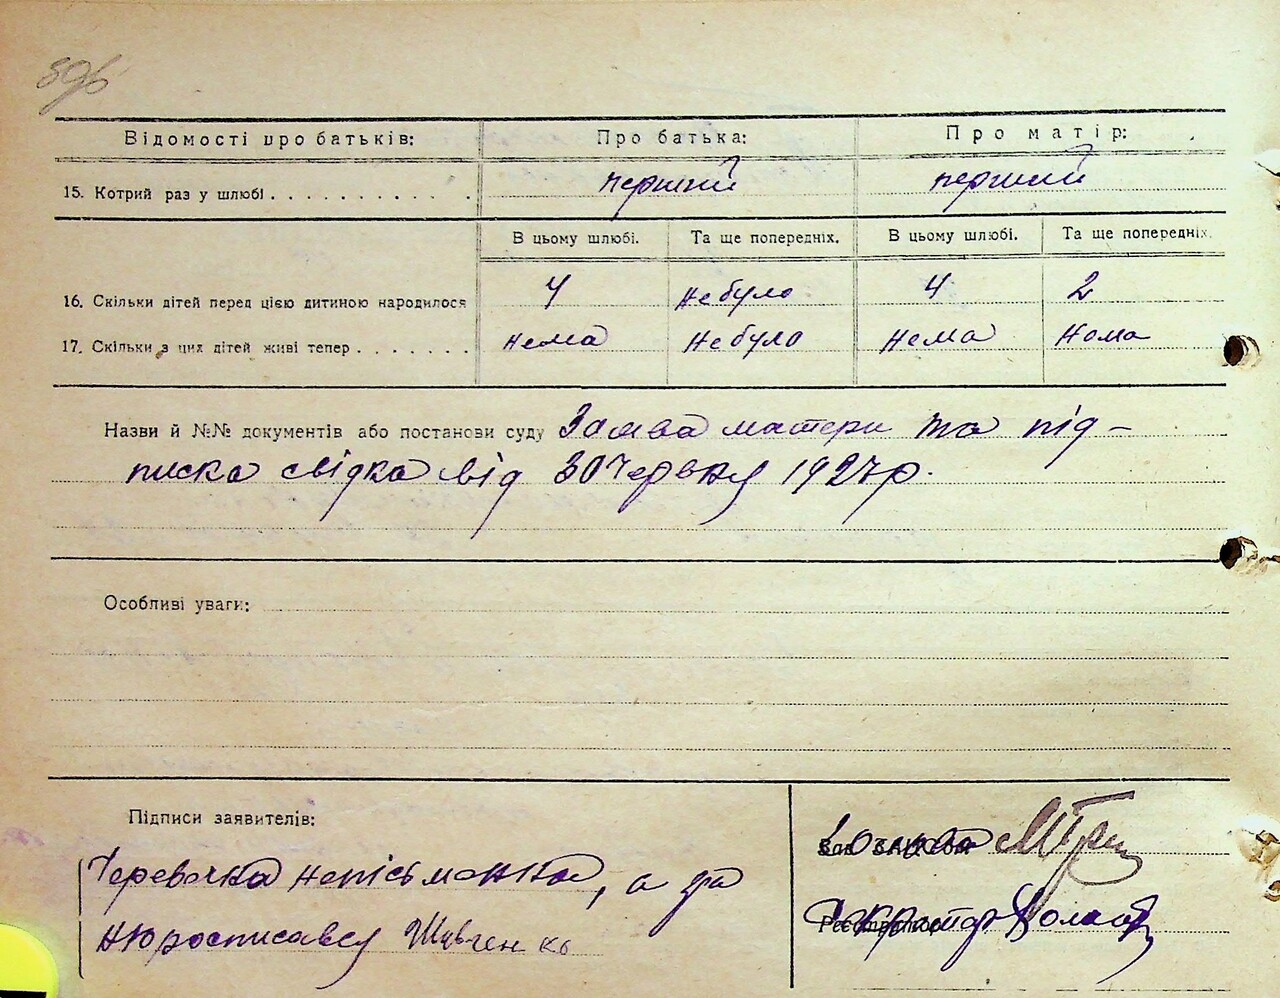 596
Відомості про батьків: Про батька: Про матір:
15. Котрий раз у шлюбі . . . . . . . . . . . . перший перший
В цьому шлюбі. Та ще попередніх. В цьому шлюбі. Та ще попередніх.
16. Скільки дітей перед цією дитиною народилося 4 не було 4 2
17. Скільки з цих дітей живі тепер . . . . . . . нема не було нема нома
Назви й №№ документів або постанови суду Заява матери та під-
писка свідка від 30 червня 1927 р.
Особливі уваги:
Підписи заявителів:
Голова
Черевочка неписьменна, а за
ню росписався Шевченко
Секретар